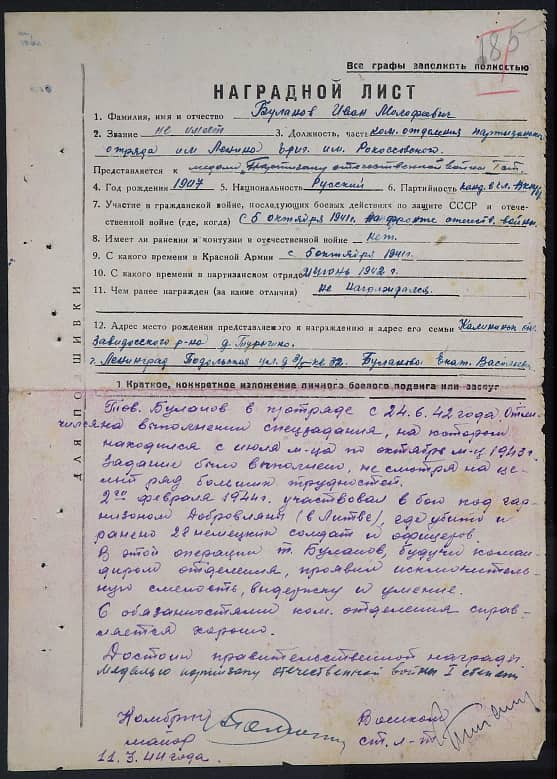 185
Все графы заполнять полностью
НАГРАДНОЙ ЛИСТ
1. Фамилия, имя и отчество Буланов Иван
2. Звание не имеет 3. Должность, часть ком. отделения партизанск.
отряда им Ленина бриг. им. Рокоссовского.
Представляется к медали "Партизану отечественной войны 1 ст.
4. Год рождения 1907 5. Национальность Русский 6. Партийность канд. в чл. ВКП/б
7. Участие в гражданской войне, последующих боевых действиях по защите СССР и отече-
ственной войне (где, когда) с 5 октября 1941г. на фронте отечеств. войны
8. Имеет ли ранения и контузии в отечественной войне нет.
9. С какого времени в Красной Армии с 5 октября 1941г.
10. С какого времени в партизанском отряде июнь 1942 г.
11. Чем ранее награжден (за какие отличия) не награждался.
12. Адрес место рождения представляемого к награждению и адрес его семьи Калининск. обл.
Завидовского р-на д.
г. Ленинград Подольская ул. д. кв 32. Буланова Екат.
1 Краткое, конкретное изложение личного боевого подвига или заслуг
Тов. Буланов в п/отряде с 24.6.42 года. Отли-
чился на выполнении спецзадания, на котором
находился с июля м-ца по октябрь м-ц 1943г.
Задание было выполнено, не смотря на це-
лый ряд больших трудностей.
2го февраля 1944г. участвовал в бою под гар-
низоном Добровляны (в Литве), где убито и
ранено 28 немецких солдат и офицеров.
В этой операции т. Буланов, будучи коман-
диром отделения, проявил исключитель-
ную смелость, выдержку и умение.
С обязанностями ком. отделения справ-
ляется хорошо.
Достоин правительственной награды
Медалью партизану отечественной войны I степени
Комбриг
майор
11.3.44 года.
Военком
ст. л-т
ДЛЯ ПОДШИВКИ